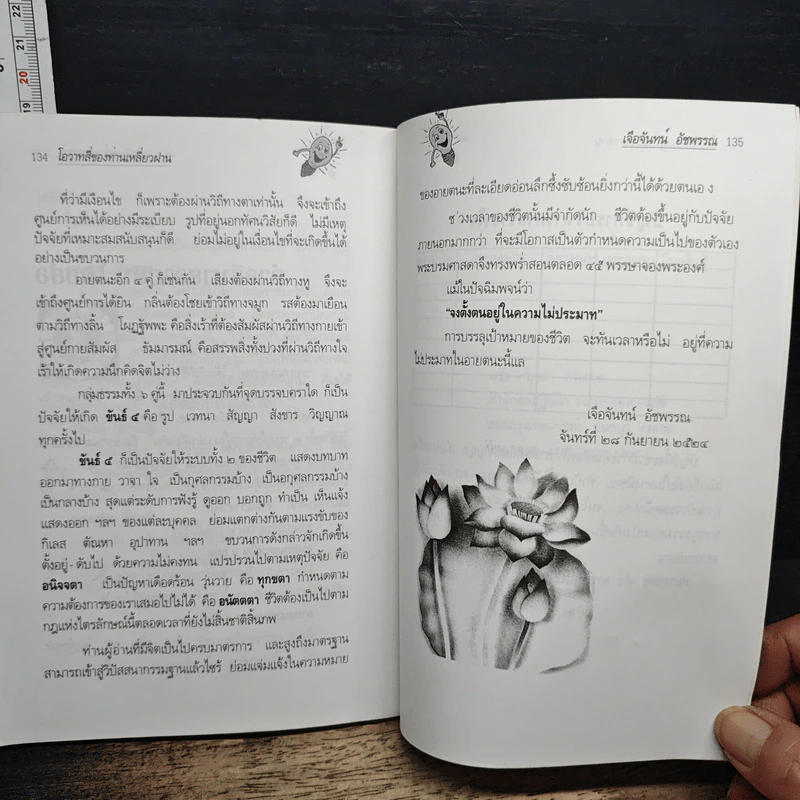 134 โอวาทสี่ของท่านเหลี่ยวฝาน
ที่ว่ามีเงื่อนไข ก็เพราะต้องผ่านวิถีทางตาเท่านั้น จึงจะเข้าถึง
ศูนย์การเห็นได้อย่างมีระเบียบ รูปที่อยู่นอกทัศนวิสัยก็ดี ไม่มีเหตุ
ปัจจัยที่เหมาะสมสนับสนุนก็ดี ย่อมไม่อยู่ในเงื่อนไขที่จะเกิดขึ้นได้
อย่างเป็นขบวนการ
อายตนะอีก ๔ คู่ ก็เช่นกัน เสียงต้องผ่านวิถีทางหู จึงจะ
เข้าถึงศูนย์การได้ยิน กลิ่นต้องโชยเข้าวิถีทางจมูก รสต้องมาเยือน
ตามวิถีทางลิ้น โผฏฐัพพะ คือสิ่งเร้าที่ต้องสัมผัสผ่านวิถีทางกายเข้า
สู่ศูนย์กายสัมผัส ธัมมารมณ์ คือสรรพสิ่งทั้งปวงที่ผ่านวิถีทางใจ
เร้าให้เกิดความนึกคิดจิตไม่ว่าง
กลุ่มธรรมทั้ง ๖ คู่นี้ มาประจวบกันที่จุดบรรจบคราใด ก็เป็น
ปัจจัยให้เกิด ขันธ์ ๕ คือ รูป เวทนา สัญญา สังขาร วิญญาณ
ทุกครั้งไป
ขันธ์ ๕ ก็เป็นปัจจัยให้ระบบทั้ง ๒ ของชีวิต แสดงบทบาท
ออกมาทางกาย วาจา ใจ เป็นกุศลกรรมบ้าง เป็นอกุศลกรรมบ้าง
เป็นกลางบ้าง สุดแต่ระดับการฟังรู้ ดูออก บอกถูก ทำเป็น เห็นแจ้ง
แสดงออก ฯลฯ ของแต่ละบุคคล ย่อมแตกต่างกันตามแรงขับของ
กิเลส ตัณหา อุปาทาน ฯลฯ ขบวนการดังกล่าวจักเกิดขึ้น
ตั้งอยู่-ดับไป ด้วยความไม่คงทน แปรปรวนไปตามเหตุปัจจัย คือ
อนิจจตา เป็นปัญหาเดือดร้อน วุ่นวาย คือ ทุกขตา กำหนดตาม
ความต้องการของเราเสมอไปไม่ได้ คือ อนัตตตา ชีวิตต้องเป็นไปตาม
กฎแห่งไตรลักษณ์นี้ตลอดเวลาที่ยังไม่สิ้นชาติสิ้นภพ
ท่านผู้อ่านที่มีจิตเป็นไปครบมาตรการ และสูงถึงมาตรฐาน
สามารถเข้าสู่วิปัสสนากรรมฐานแล้วไซร้ ย่อมแจ่มแจ้งในความหมาย
เจือจันทน์ อัชพรรณ 135
ของอายตนะที่ละเอียดอ่อนลึกซึ้งซับซ้อนยิ่งกว่านี้ได้ด้วยตนเอง
ช่วงเวลาของชีวิตนั้นมีจำกัดนัก ชีวิตต้องขึ้นอยู่กับปัจจัย
ภายนอกมากกว่า ที่จะมีโอกาสเป็นตัวกำหนดความเป็นไปของตัวเอง
พระบรมศาสดาจึงทรงพร่ำสอนตลอด ๔๕ พรรษาของพระองค์
แม้ในปัจฉิมพจน์ว่า
"จงตั้งตนอยู่ในความไม่ประมาท"
การบรรลุเป้าหมายของชีวิต จะทันเวลาหรือไม่ อยู่ที่ความ
ไม่ประมาทในอายตนะนี้แล
เจือจันทน์ อัชพรรณ
จันทร์ที่ ๒๘ กันยายน ๒๕๒๔